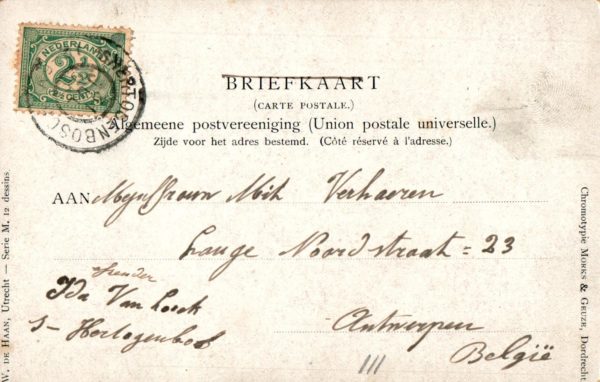 NEDERLAND
2½
2½ CENT
'SHERTOGENBOSCH
BRIEFKAART
(CARTE POSTALE.)
Algemeene postvereeniging (Union postale universelle.)
Zijde voor het adres bestemd. (Côté réservé à l'adresse.)
AAN Mejuffrouw Mit Verhaeren
Lange Noordstraat = 23
Afzender
Ida Van Loock
S- Hertogenbos
Antwerpen
België
W. DE HAAN, Utrecht — Serie M. 12 dessins
Chromotypie MORKS & GEUZE, Dordrecht